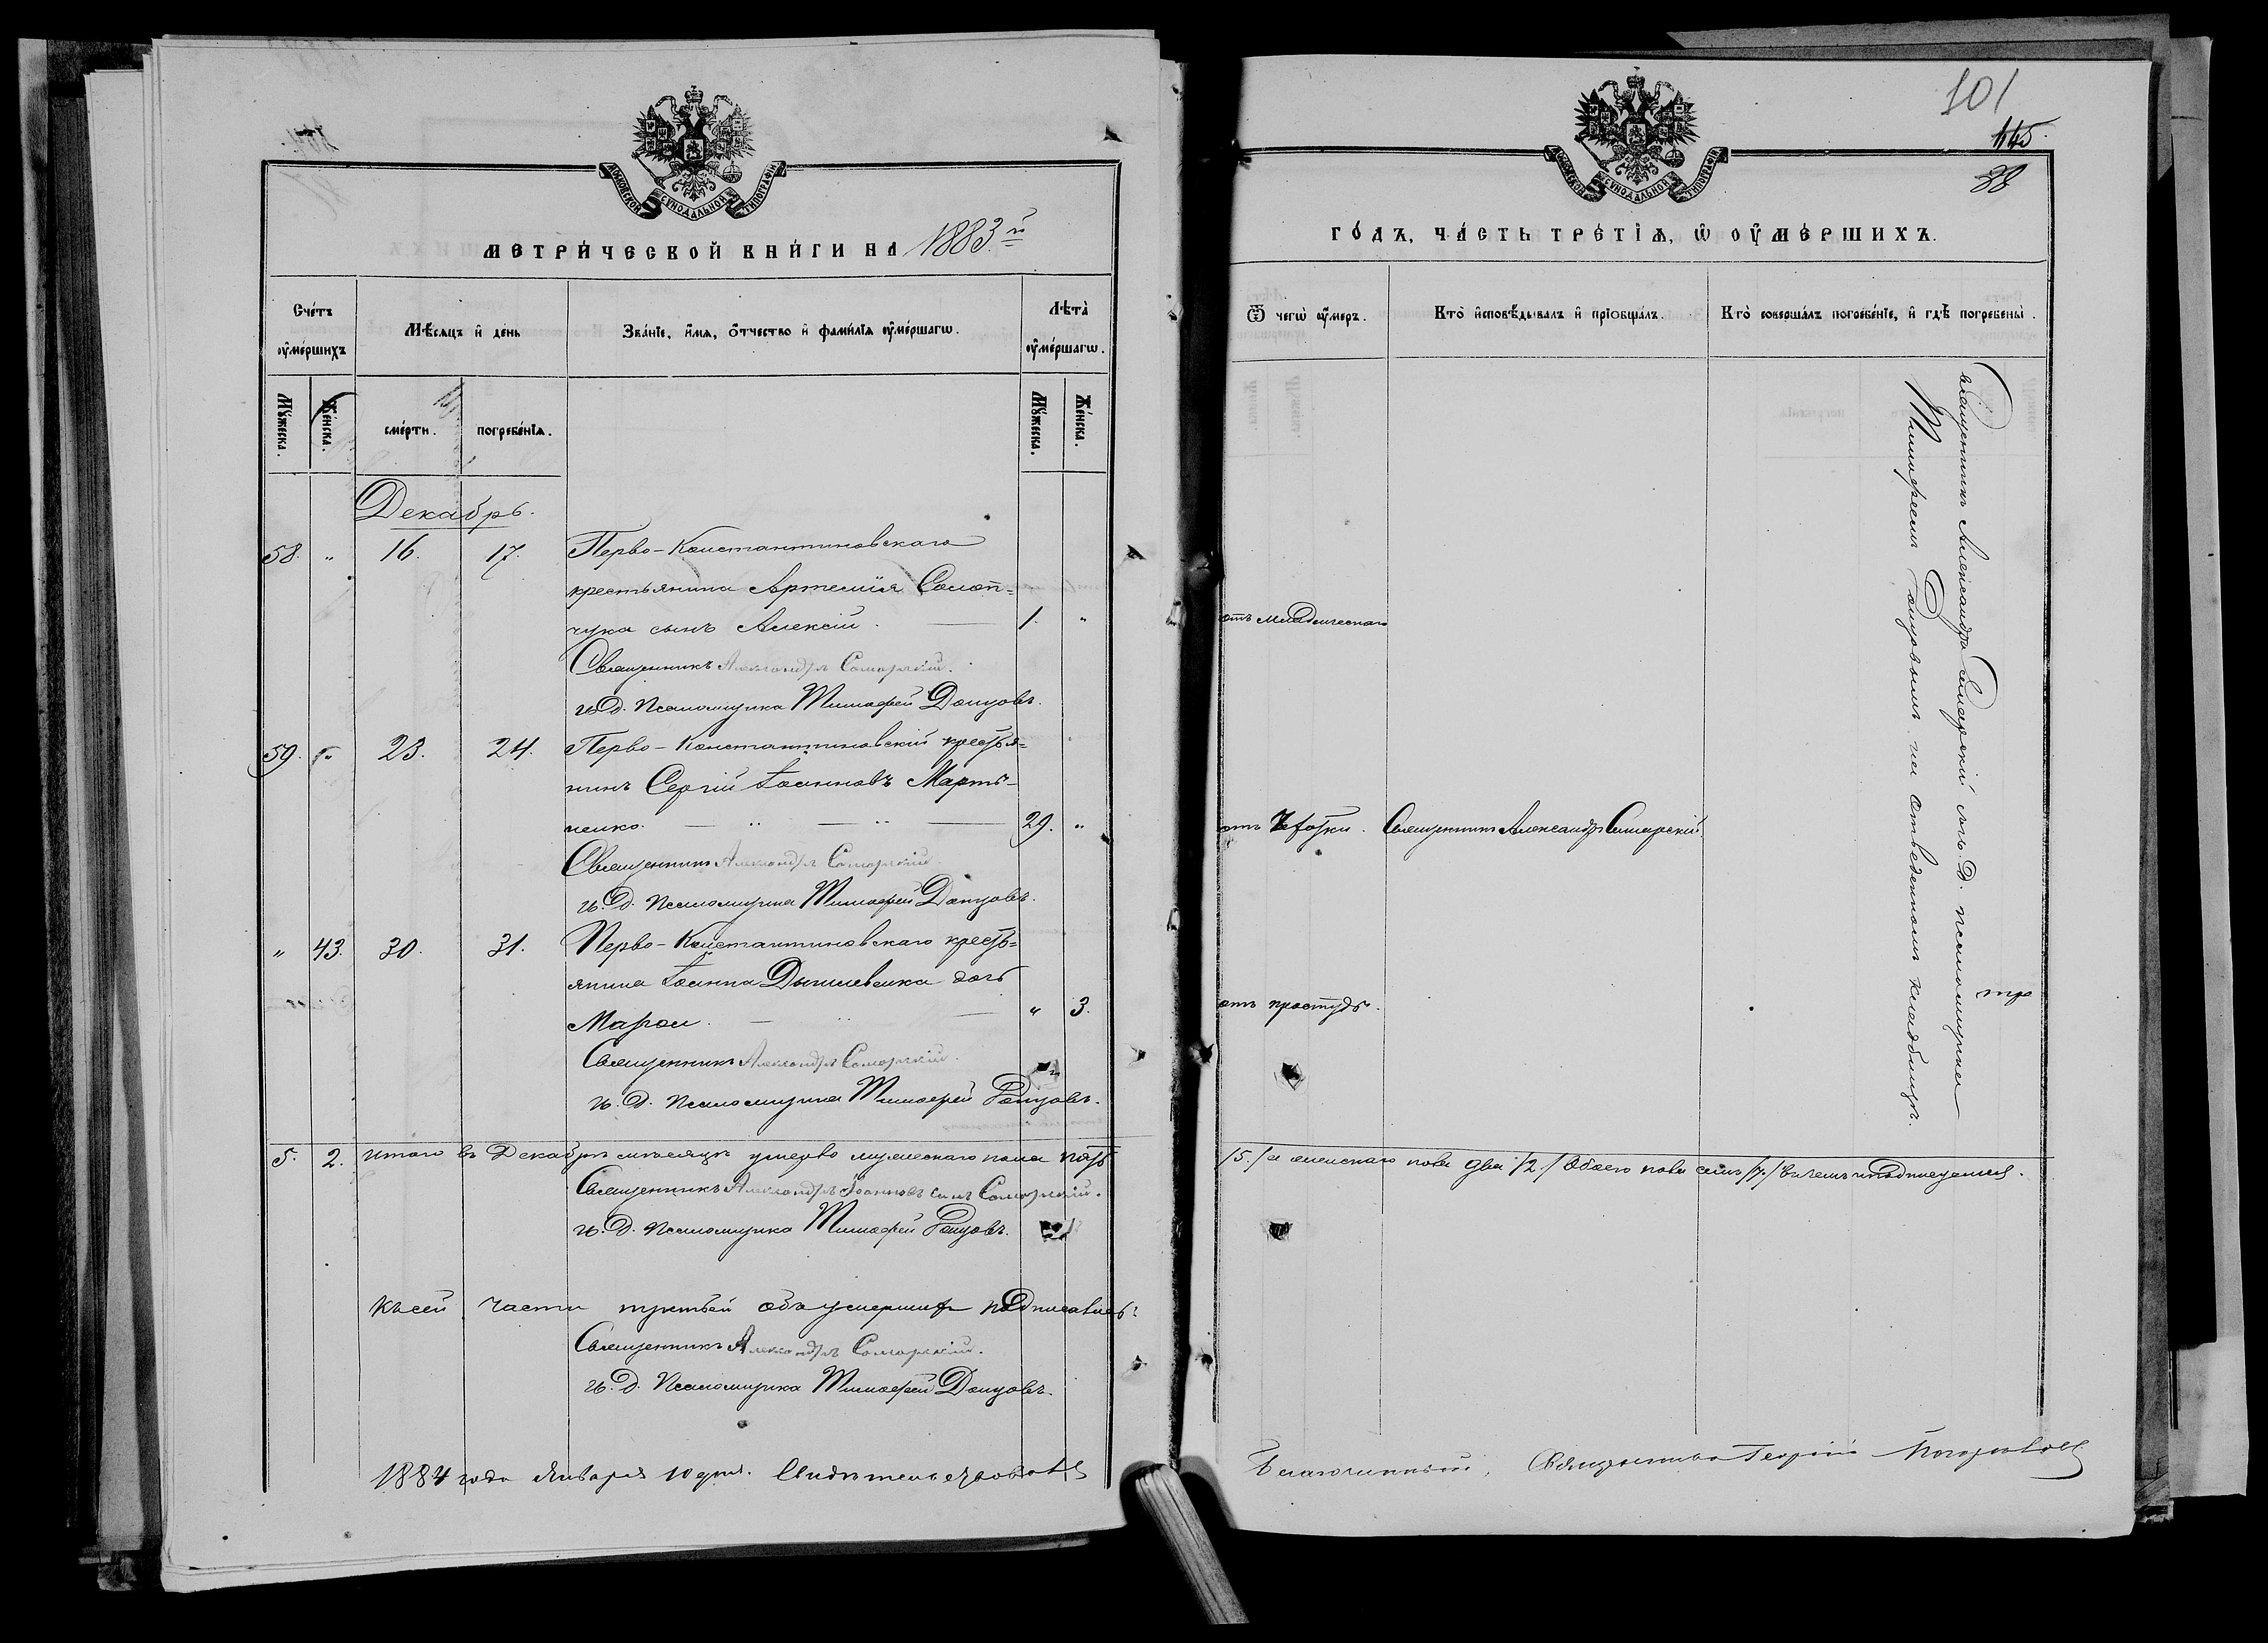 МОСКОВСКОЙ СУНОДАЛЬНОЙ ТИПОГРАФІИ
МЕТРИ́ЧЕСКОЙ КНИ́ГИ НА 1883й
Сче́тъ оу҆ме́ршихъ
Мѣ́сяцъ и҆ де́нь
Зва́нїе, и҆́мя, ѻ҆́тчество и҆ фами́лїя оу҆ме́ршагѡ.
Лѣ́та̀ оу҆ме́ршагѡ.
Мꙋ́жеска.
Же́нска.
сме́рти.
погребе́нїѧ.
Мꙋ́жеска.
Же́нска.
Декабрь.
58. " 16. 17. Перво-Константиновскаго
крестьянина Артемія Солоп=
чука сынъ Алексій. 1. "
Священникъ Александръ Самарскій.
и. д. Псаломщика Тимофей Донцовъ.
59. " 23. 24. Перво-Константиновскій кресть=
нинъ Сергій Іоанновъ Марты=
ненко. 29. "
Священникъ Александръ Самарскій.
и. д. Псаломщика Тимофей Донцовъ.
" 43. 30. 31. Перво-Константиновскаго кресть=
янина Іоанна дочь
" 3.
Священникъ Александръ Самарскій.
и. д. Псаломщика Тимофей Донцовъ.
5. 2. Итого въ Декабрѣ мѣсяцѣ умерло мужескаго пола пять
Священникъ Александръ Іоанновъ сынъ Самарскій.
и. д. Псаломщика Тимофей Донцовъ.
Къ сей части третьей объ умершихъ подписались:
Священникъ Александръ Самарскій.
и. д. Псаломщика Тимофей Донцовъ.
1884 года Января 10 дня. Свидѣтельствовалъ
101
115.
88
МОСКОВСКОЙ СУНОДАЛЬНОЙ ТИПОГРАФІИ
ГО́ДЪ, ЧА́СТЬ ТРЕ́ТЇѦ, Ѡ҆ ОУ҆МЕ́РШИХЪ.
Ѿ чегѡ̀ оу҆́меръ.
Кто̀ и҆сповѣ́дывалъ и҆ прїѡбща́лъ.
Кто̀ соверша́лъ погребе́нїе, и҆ гдѣ̀ погребены̀.
отъ младенческаго
отъ чахотки. Священникъ Александръ Самарскій.
отъ простуды.
Священникъ Александръ Самарскій съ и. д. псаломщика
Тимофеемъ Донцовымъ на отведенномъ кладбищѣ.
/5./ и женскаго пола два /2./ Обоего пола семь /7/ въ чемъ и подписуемся.
Благочинный, Священникъ Георгій